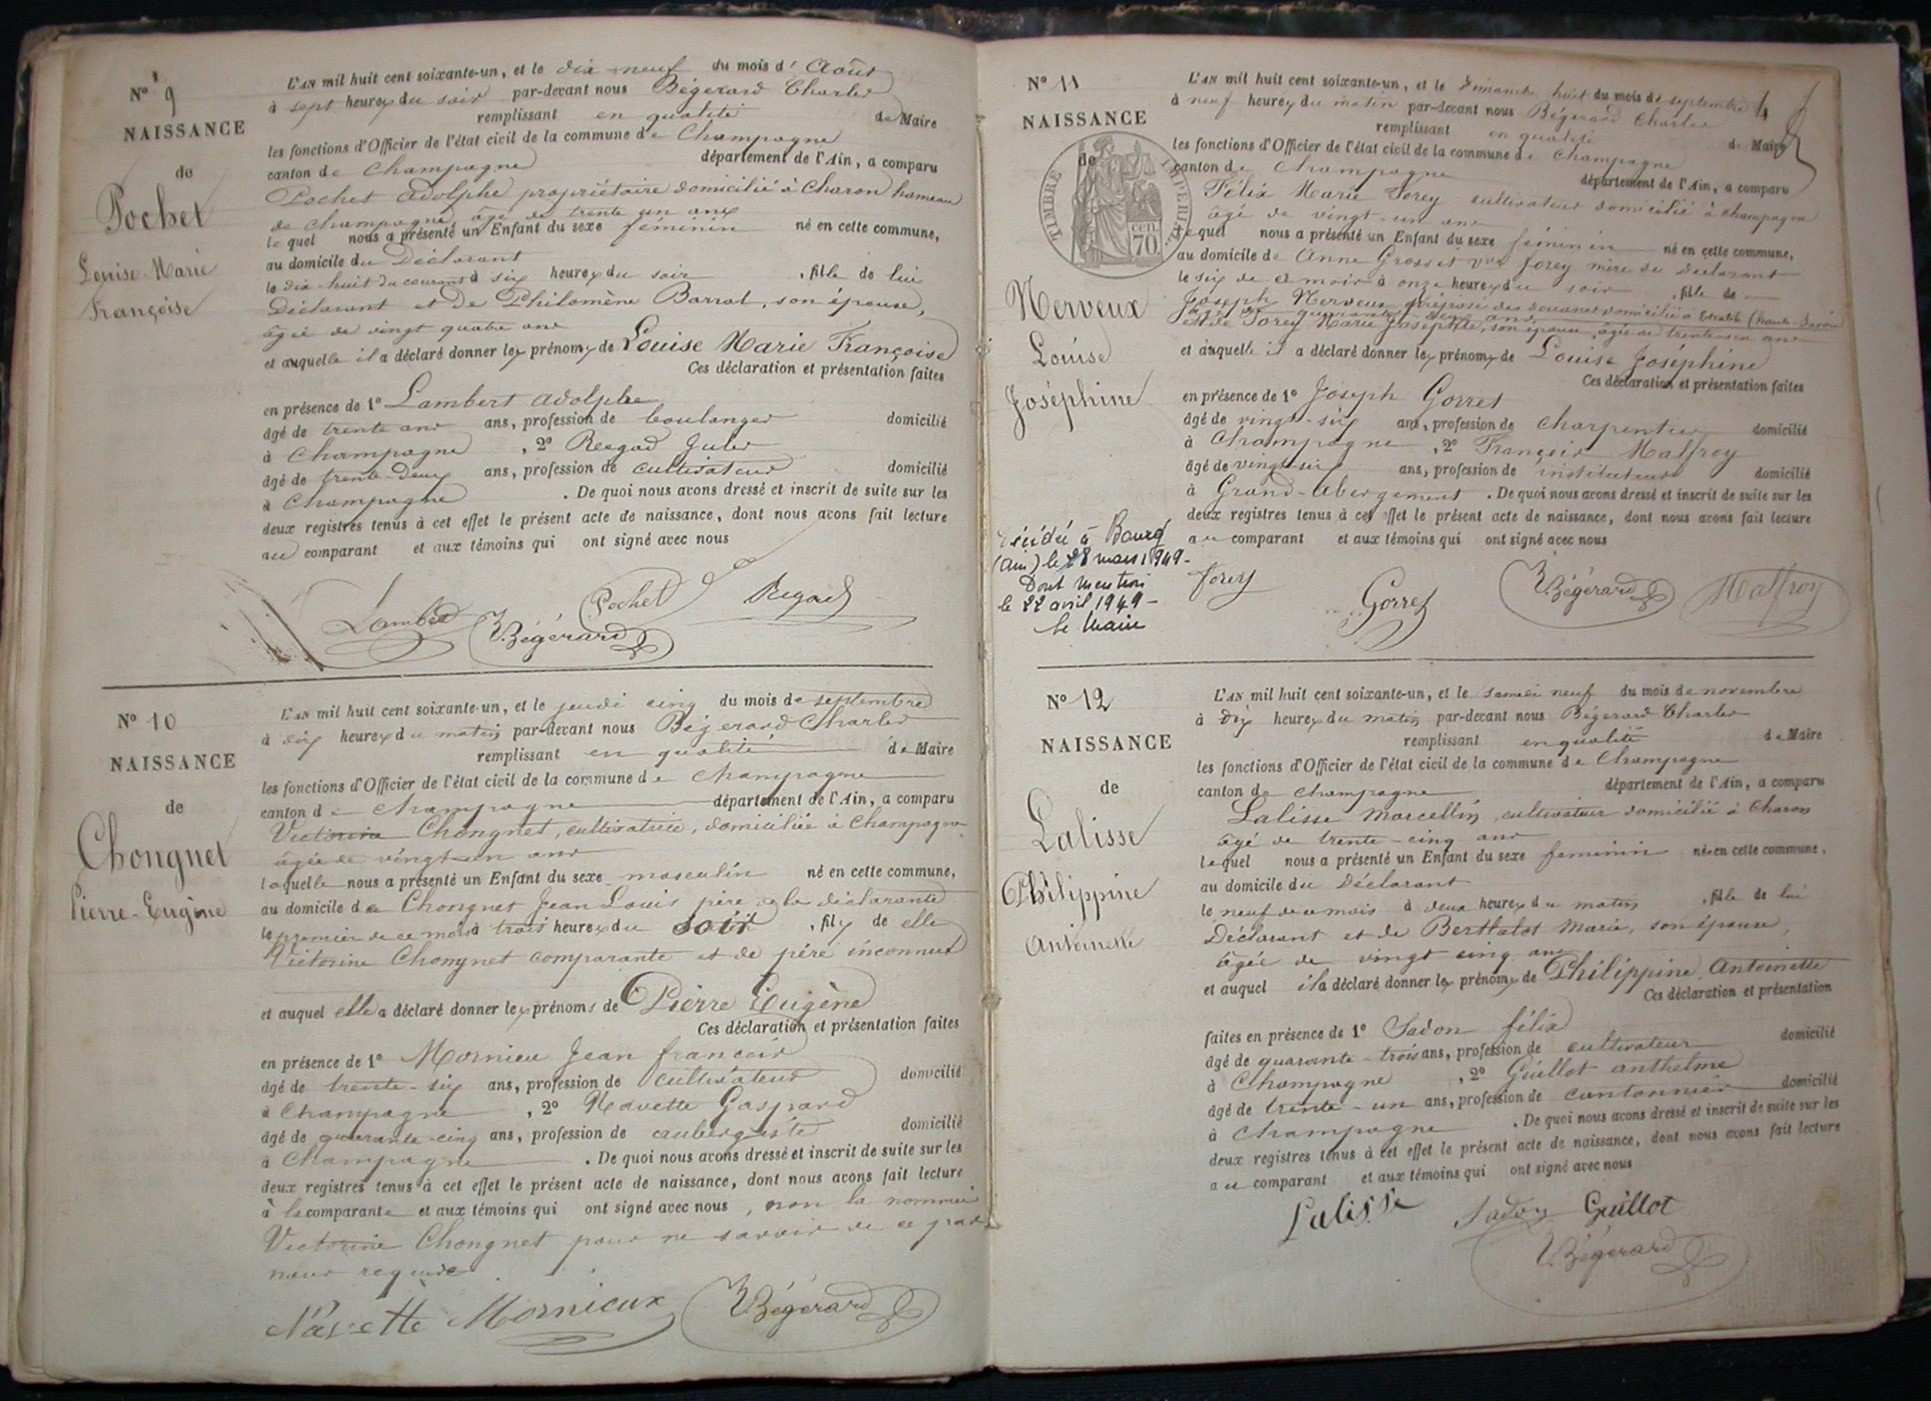 N° 9
NAISSANCE
de
Pochet
Louise-Marie
Françoise
L'AN mil huit cent soixante-un, et le dix neuf du mois d'Août
à sept heures du soir par-devant nous Bégerard Charles
remplissant en qualité de Maire
les fonctions d'Officier de l'état civil de la commune de Champagne
canton de Champagne département de l'Ain, a comparu
Pochet Adolphe propriétaire domicilié à Charon hameau
de Champagne, âgé de trente un ans
lequel nous a présenté un Enfant du sexe féminin né en cette commune,
au domicile du Déclarant
le dix-huit du courant à six heures du soir, fille de lui
Déclarant et de Philomène Barrat, son épouse,
âgée de vingt quatre ans
et auquelle il a déclaré donner les prénoms de Louise Marie Françoise
Ces déclaration et présentation faites
en présence de 1° Lambert Adolphe
âgé de trente ans ans, profession de boulanger domicilié
à Champagne, 2° Reegad Jules
âgé de trente-Deux ans, profession de cultivateur domicilié
à Champagne. De quoi nous avons dressé et inscrit de suite sur les
deux registres tenus à cet effet le présent acte de naissance, dont nous avons fait lecture
au comparant et aux témoins qui ont signé avec nous
Pochet Regad
Lambert Bégerard
N° 10
NAISSANCE
de
Chongnet
Pierre-Eugène
L'AN mil huit cent soixante-un, et le jeudi cinq du mois de septembre
à dix heures du matin par-devant nous Bégerard Charles
remplissant en qualité de Maire
les fonctions d'Officier de l'état civil de la commune de Champagne
canton de Champagne département de l'Ain, a comparu
Victorine Chongnet, cultivatrice, domiciliée à Champagne
âgée de vingt un ans
laquelle nous a présenté un Enfant du sexe masculin né en cette commune,
au domicile de Chongnet Jean Louis père de la déclarante
le premier de ce mois à trois heures du soir, fils de elle
Victorine Chongnet comparante et de père inconnu
et auquel elle a déclaré donner les prénoms de Pierre Eugène
Ces déclaration et présentation faites
en présence de 1° Mornieu Jean françois
âgé de trente-six ans, profession de cultivateur domicilié
à Champagne, 2° Navette Gaspard
âgé de quarante-cinq ans, profession de aubergiste domicilié
à Champagne. De quoi nous avons dressé et inscrit de suite sur les
deux registres tenus à cet effet le présent acte de naissance, dont nous avons fait lecture
à la comparante et aux témoins qui ont signé avec nous, non la nommée
Victorine Chongnet pour ne savoir de ce par
nous requise
Navette Mornieux Bégerard
N° 11
NAISSANCE
de
TIMBRE IMPERIAL
70 cen
Nerveux
Louise
Joséphine
L'AN mil huit cent soixante-un, et le Dimanche huit du mois de septembre
à neuf heures du matin par-devant nous Bégerard Charles
remplissant en qualité de Maire
les fonctions d'Officier de l'état civil de la commune de Champagne
canton de Champagne département de l'Ain, a comparu
Félix Marie Jorey cultivateur domicilié à Champagne
âgé de vingt-un ans
lequel nous a présenté un Enfant du sexe féminin né en cette commune,
au domicile de Anne Grosset vve Jorey mère du déclarant
le six de ce mois à onze heures du soir, fille de
Joseph Nerveux préposé des douanes domicilié à (haute-Savoie
âgé de quarante ans
et de Jorey Marie Josephte, son épouse, âgée de trente-un ans
et auquelle il a déclaré donner les prénoms de Louise Joséphine
Ces déclaration et présentation faites
en présence de 1° Joseph Gorret
âgé de vingt-six ans, profession de charpentier domicilié
à Champagne, 2° François Malfroy
âgé de vingt-six ans, profession de instituteur domicilié
à Grand-Abergement. De quoi nous avons dressé et inscrit de suite sur les
deux registres tenus à cet effet le présent acte de naissance, dont nous avons fait lecture
au comparant et aux témoins qui ont signé avec nous
Décédée à Bourg
(Ain) le 28 mars 1949-
Dont mention
le 22 avril 1949-
Le Maire
Jorey Gorret Bégerard Malfroy
N° 12
NAISSANCE
de
Lalisse
Philippine
Antoinette
L'AN mil huit cent soixante-un, et le samedi neuf du mois de novembre
à dix heures du matin par-devant nous Bégerard Charles
remplissant en qualité de Maire
les fonctions d'Officier de l'état civil de la commune de Champagne
canton de Champagne département de l'Ain, a comparu
Lalisse Marcellin, cultivateur domicilié à Charon
âgé de trente-cinq ans
lequel nous a présenté un Enfant du sexe féminin née en cette commune,
au domicile du Déclarant
le neuf de ce mois à deux heures du matin, fille de lui
Déclarant et de Berthelot Marie, son épouse,
âgée de vingt cinq ans
et auquel il a déclaré donner les prénoms de Philippine Antoinette
Ces déclaration et présentation
faites en présence de 1° Sadon félix
âgé de quarante-trois ans, profession de cultivateur domicilié
à Champagne, 2° Guillot anthelme
âgé de trente-un ans, profession de cantonnier domicilié
à Champagne. De quoi nous avons dressé et inscrit de suite sur les
deux registres tenus à cet effet le présent acte de naissance, dont nous avons fait lecture
au comparant et aux témoins qui ont signé avec nous
Lalisse Sadon Guillot
Bégerard